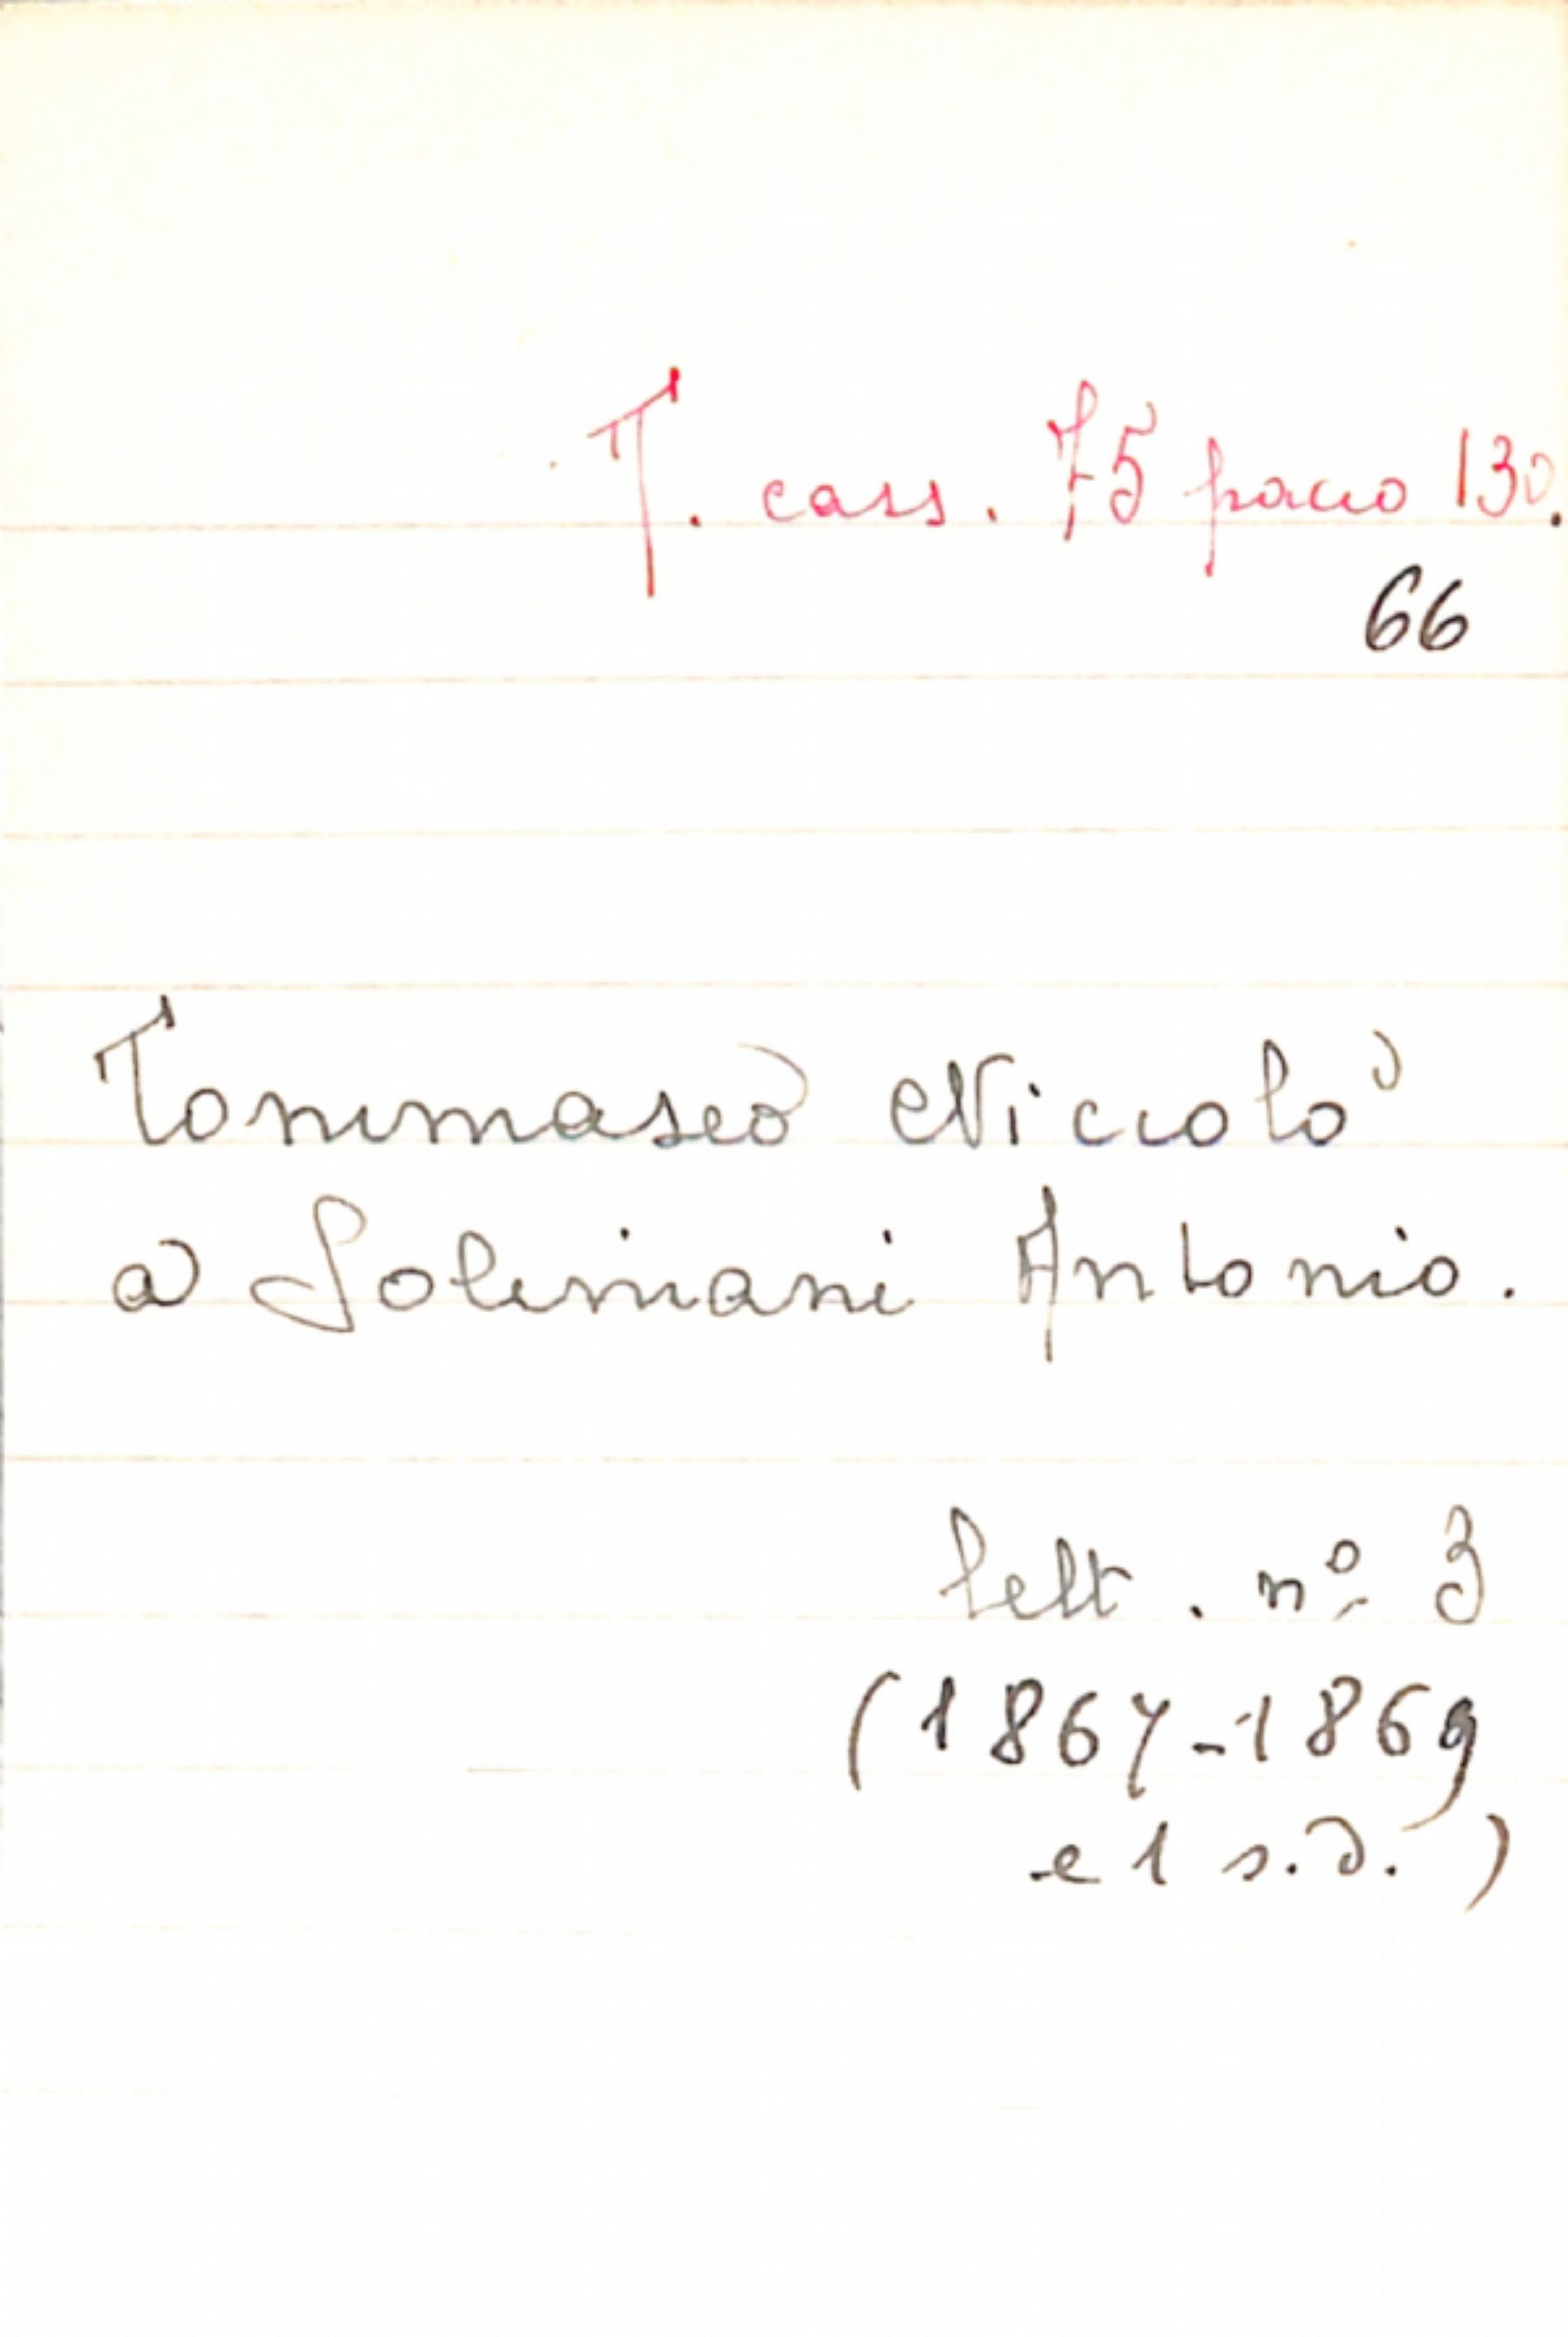 T. cass. 75 pacco 130.
66
Tommaseo Niccolò
a Solimani Antonio.
lett. nº 3
(1867-1869
e 1 s.d.)